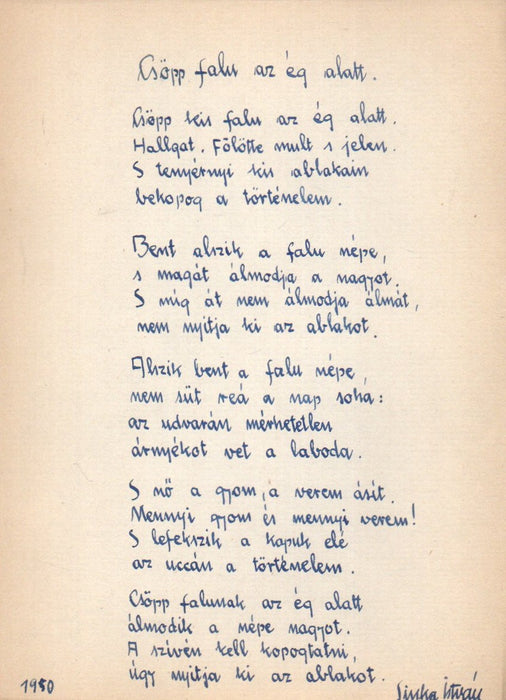 Csöpp falu az ég alatt.
Csöpp kis falu az ég alatt.
Hallgat. Fölötte mult s jelen.
S tenyérnyi kis ablakain
bekopog a történelem.
Bent alszik a falu népe,
s magát álmodja a nagyot.
S míg át nem álmodja álmát,
nem nyitja ki az ablakot.
Alszik bent a falu népe,
nem süt reá a nap soha:
az udvarán mérhetetlen
árnyékot vet a laboda.
S nő a gyom, a verem ásít.
Mennyi gyom és mennyi verem!
S lefekszik a kapuk elé
az uccán a történelem.
Csöpp falunak az ég alatt
álmodik a népe nagyot.
A szivén kell kopogtatni,
úgy nyitja ki az ablakot.
1950
Sinka István